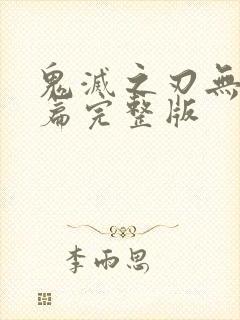 鬼滅之刃無
篇完整版
李雨思